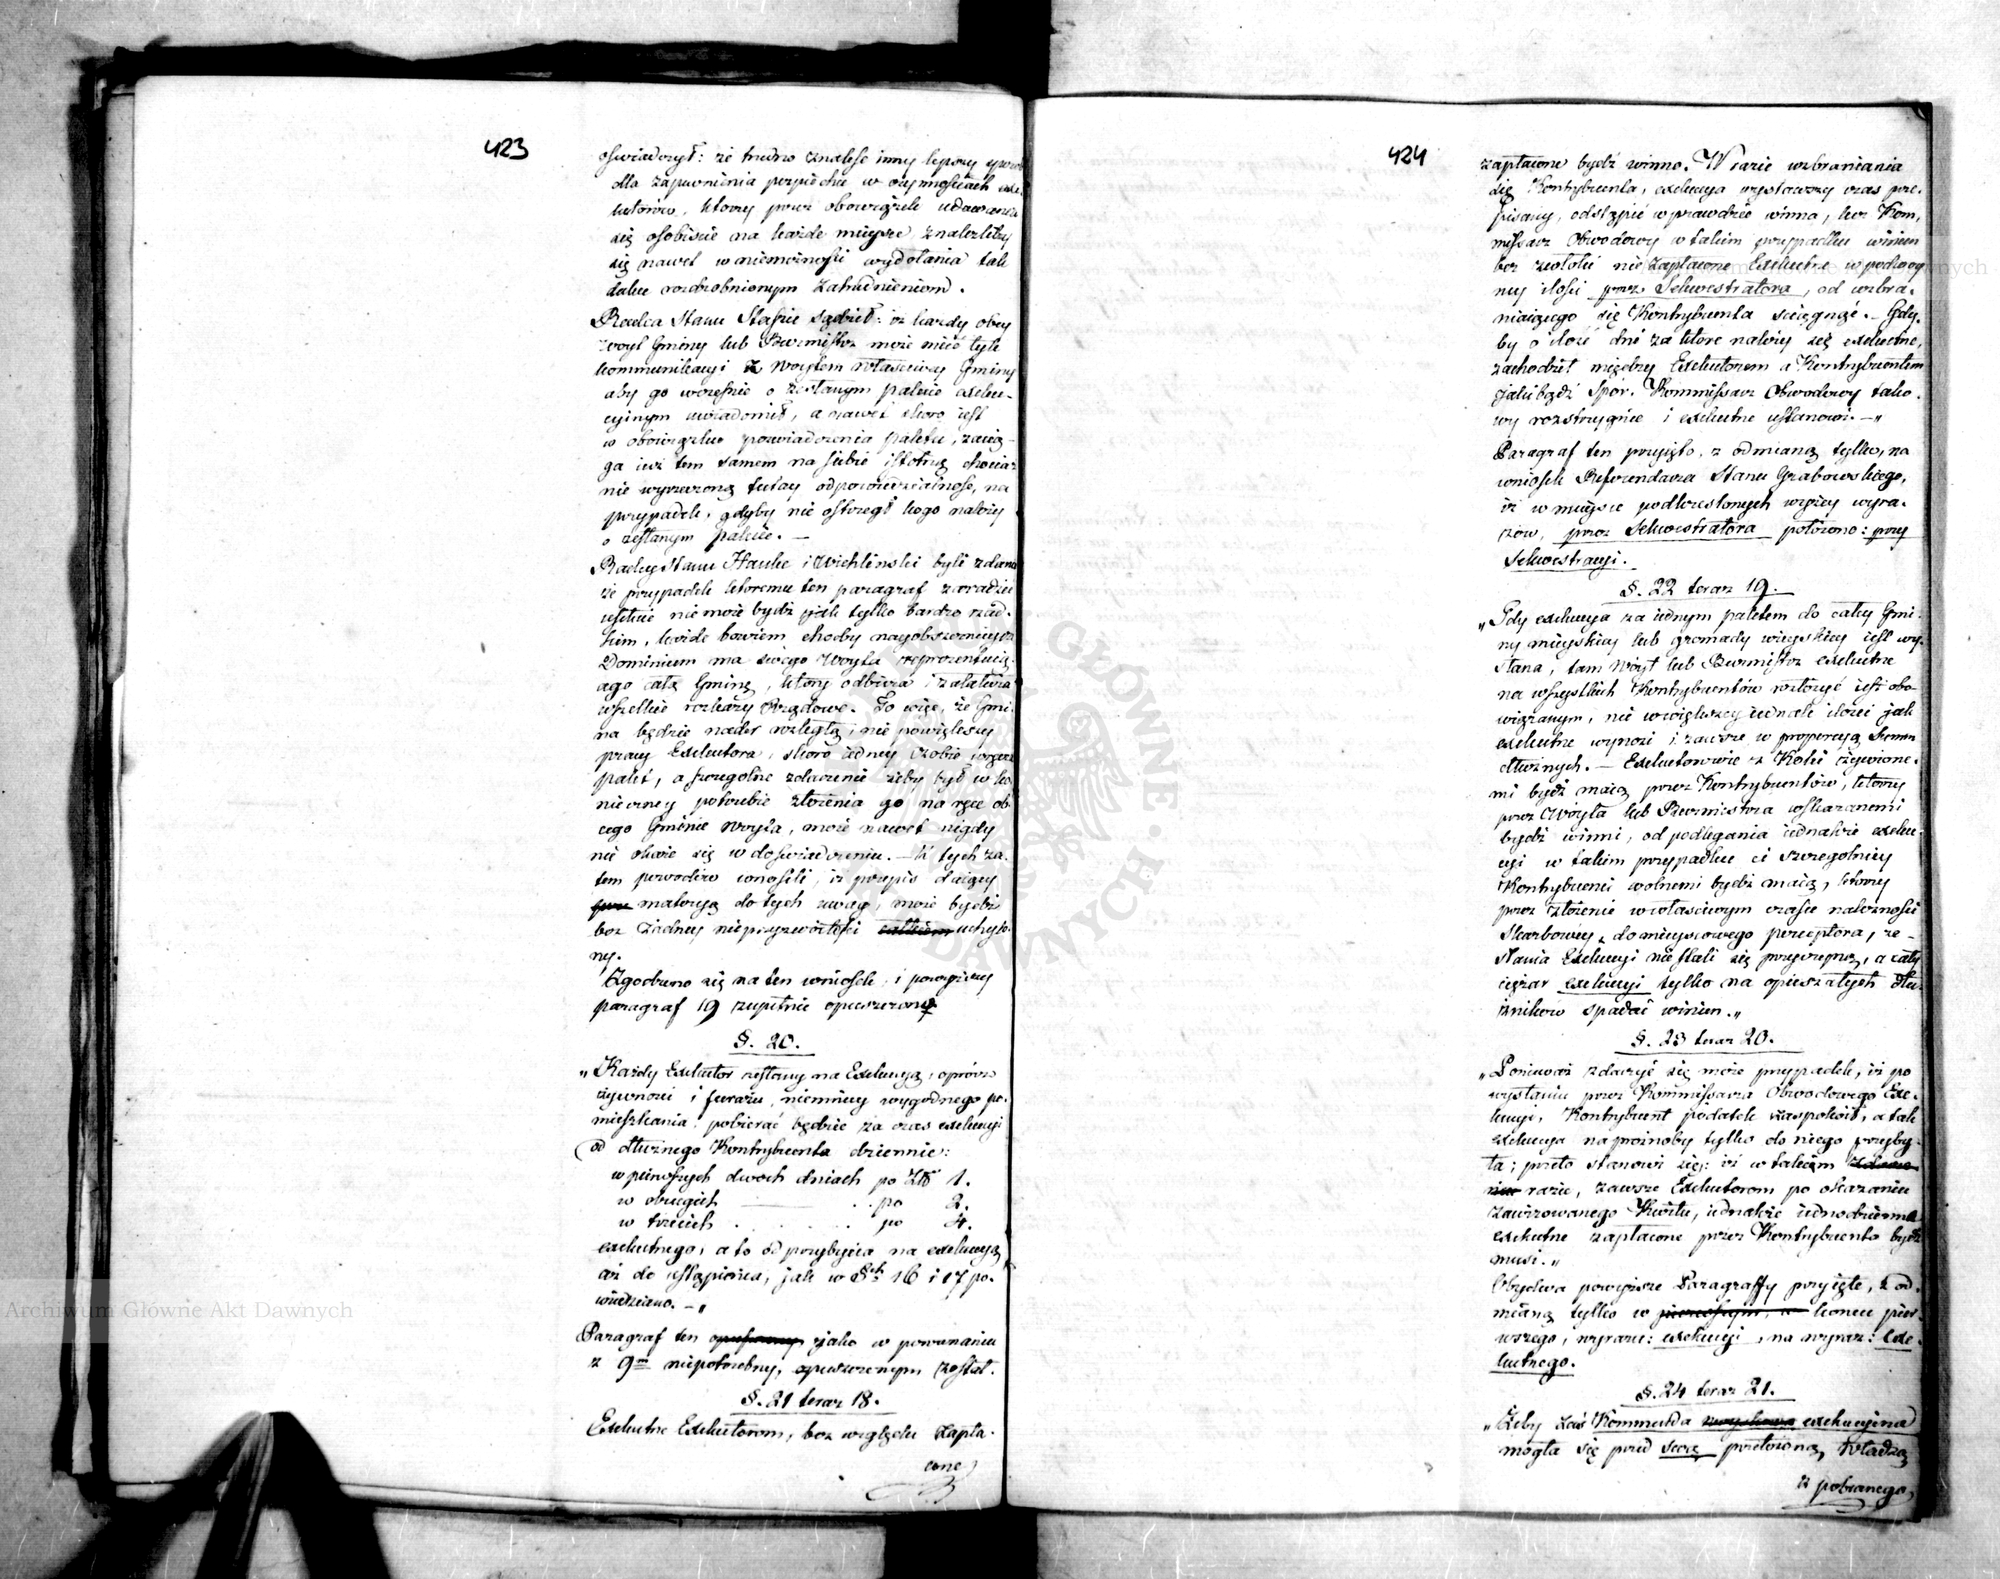 423
oświadczył: że trudno znaleść inny lepszy sposób
dla zapewnienia pospiechu w czynnościach exe-
kutorów, którzy przez obowiązek udawania
się osobiście na każde mieysce, znaleźliby
się nawet w niemożności wydołania tak
dalece rozdrobnionym zatrudnieniom.
Radca Stanu Staszic sądził: iż każdy obcy
Woyt Gminy lub Burmistrz może mieć tyle
kommunikacyi z Woytem właściwey Gminy
aby go wcześnie o zesłanym palecie exeku-
cyinym uwiadomił, a nawet skoro iest
w obowiązku poświadczenia paletu, zacią-
ga iuż tem samem na siebie istotną chociaż
nie wyrzeczoną tutay odpowiedzialność, na
przypadek, gdyby nie ostrzegł kogo należy
o zesłanym palecie. —
Radcy Stanu Hauke i Wichliński byli zdania
że przypadek któremu ten paragraf zaradzić
usiłuie nie może bydź jak tylko bardzo rzad-
kim, każde bowiem choćby nayobszernieysze
Dominium ma swego Woyta reprezentuią-
cego całą Gminę, który odbiera i załatwia
wszelkie rozkazy Rządowe. To więc, że Gmi-
na będzie nader rozległą, nie powiększy
pracy Exekutora, skoro iedney osobie wręcza
palet, a szczególne zdarzenie żeby był w ko-
nieczney potrzebie złożenia go na ręce ob-
cego Gminie Woyta, może nawet nigdy
nie okaże się w doświadczeniu. — Z tych za-
tem powodów wnosili, iż przepis daiący
materyą do tych uwag, może bydź
bez żadney nieprzyzwoitości całkiem uchylo-
ny.
Zgodzono się na ten wniosek, i powyższy
paragraf 19 zupełnie opuszczono
§. 20.
„Każdy Exekutor zesłany na Exekucyą, oprócz
żywności i furażu, niemniey wygodnego po-
mieszkania, pobierać będzie za czas exekucyi
od dłużnego Kontrybuenta dziennie:
w pierwszych dwóch dniach po Zł 1.
w drugich — . . po 2.
w trzecich . . . . . po 4.
exekutnego, a to od przybycia na exekucyą,
aż do ustąpienia, jak w §ch 16 i 17 po-
wiedziano. — „
Paragraf ten opuszczony jako w porównaniu
z 9m niepotrzebny, opuszczonym został.
§. 21 teraz 18.
Exekutne Exekutorom, bez względu zapła-
cone
424
zapłacone bydź winno. W razie wzbraniania
się Kontrybuenta, exekucya wystawszy czas prze-
pisany, odstąpić wprawdzie winna, lecz Kom-
missarz Obwodowy w takim przypadku winien
bez zwłoki niezapłacone Exekutne w podwóy-
ney ilości przez Sekwestratora, od wzbra-
niaiącego się Kontrybuenta ściągnąć. — Gdy-
by o ilość dni za które należy się exekutne,
zachodził między Exekutorem a Kontrybuentem
jakibądź spór, Kommissarz Obwodowy tako-
wy rozstrzygnie i exekutne ustanowi. — „
Paragraf ten przyięto, z odmianą tylko, na
wniosek Referendarza Stanu Grabowskiego,
iż w mieysce podkreślonych wyżey wyra-
zów, przez Sekwestratora położono: przy
Sekwestracyi.
§. 22 teraz 19.
„Gdy exekucya za iednym paletem do całey Gmi-
ny mieyskiey lub gromady wieyskiey iest wy-
słana, tam Woyt lub Burmistrz exekutne
na wszystkich Kontrybuentów rozłożyć iest obo-
wiązanym, nie w większey iednak ilości jak
exekutne wynosi i zawsze w proporcyą summ
dłużnych. — Exekutorowie z Kolei żywione-
mi bydź maią przez Kontrybuentów, którzy
przez Woyta lub Burmistrza wskazanemi
bydź winni, od podlegania iednakże exeku-
cyi w takim przypadku ci szczególniey
Kontrybuenci wolnemi bydź maią, którzy
przez złożenie w właściwym czasie należności
Skarbowey, do mieyscowego perceptora, ze-
słania Exekucyi nie stali się przyczyną, a cały
ciężar exekucyi tylko na opieszałych dłu-
żników spadać winien.„
§. 23 teraz 20.
„Ponieważ zdarzyć się może przypadek, iż po
wysłaniu przez Kommissarza Obwodowego Exe-
kucyi, Kontrybuent podatek zaspokoił, a tak
exekucya napróżnoby tylko do niego przyby-
ła; przeto stanowi się: iż w takim
razie, zawsze Exekutorom po okazaniu
zawizowanego Kwitu, iednakże iednodzienne
exekutne zapłacone przez Kontrybuenta bydź
musi.„
Obydwa powyższe Paragraffy przyięte, z od-
mianą tylko w pierwszym, w końcu pier-
wszego, wyrazu: exekucyi, na wyraz: exe-
kutnego.
§. 24 teraz 21.
„Żeby zaś Kommenda exekucyina
mogła się przed swą przełożoną, Władzą
z pobranego
Archiwum Główne Akt Dawnych